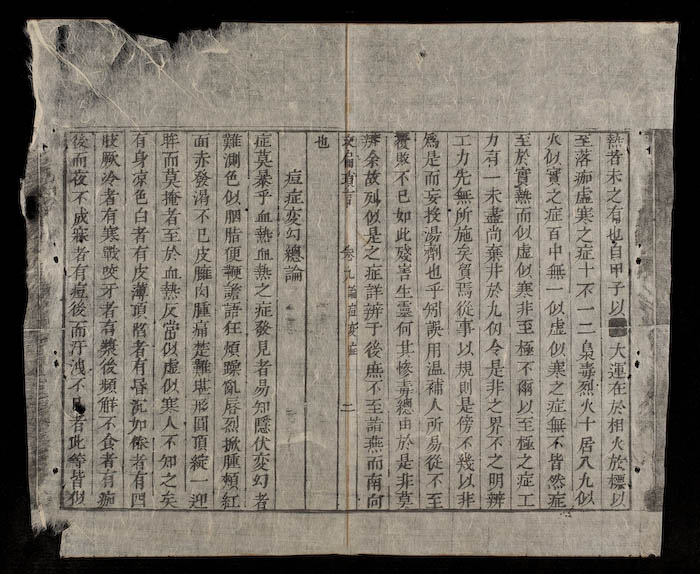 熱者未之有也自甲子以 大運在於相火放標以
至落痂虛寒之症十不一二梟毒烈火十居八九似
火似實之症百中無一似虛似寒之症無不皆然症
至於實熱而似虛似寒非至極不爾以至極之症工
力有一未盡尚棄井於九仞令是非之界不之明辨
工力先無所施矣貿焉從事以規則是傍不幾以非
爲是而妄投湯劑也乎矧誤用溫補人所易從不至
覆敗不已如此殘害生靈何其慘毒總由於是非莫
辨余故列似是之症詳辨于後庶不至詣燕而南向
救偏瑣言 卷九論症変症 二
也
痘症変幻總論
症莫暴乎血熱血熱之症發見者易知隱伏変幻者
難測色似胭脂便鞭譫語狂煩躁亂唇烈掀腫頰紅
面赤發渴不已皮臃肉腫痛楚難堪形圓頂綻一迎
眸而莫掩者至於血熱反常似虛似寒人不知之矣
有身凉色白者有皮薄頂陷者有昏沉如倦者有四
肢厥冷者有寒戰咬牙者有漿後頻觧不食者有痂
後而夜不成寐者有痘後而汗洩不 者此等皆似